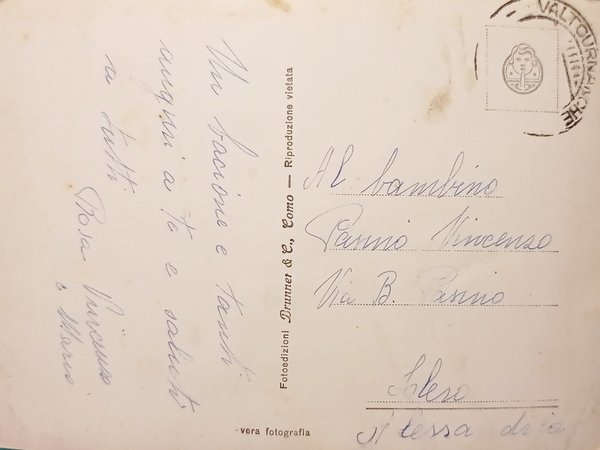 Un bacione e tanti
auguri a te e saluti
a tutti
Rosa Vincenzo
e Mario
Fotoedizioni Brunner & C., Como — Riproduzione vietata
vera fotografia
VALTOURNANCHE
Al bambino
Pasino Vincenzo
Via B. Pasino
Alessandria